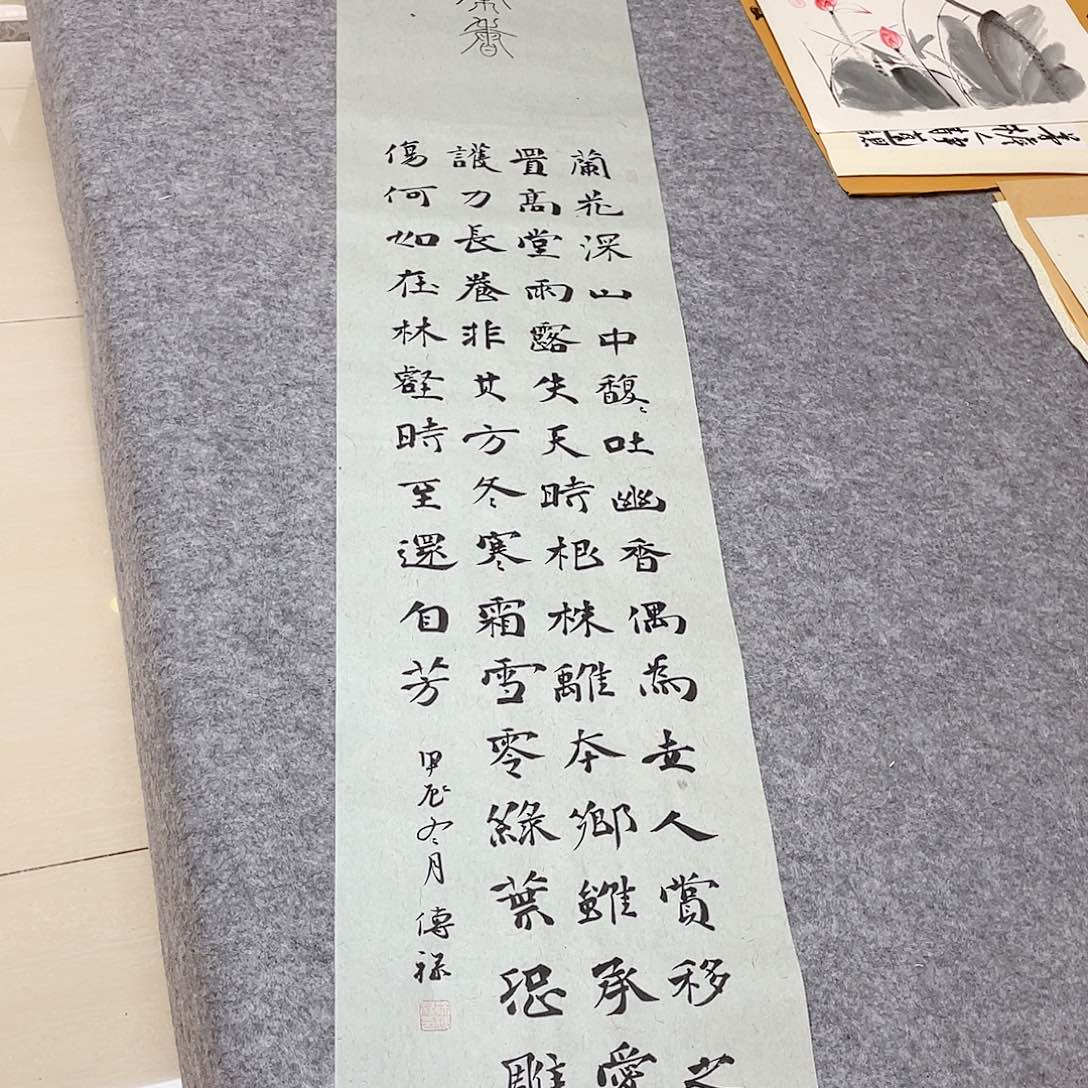 蘭花深山中馥〻吐幽香偶為世人賞移之
置高堂雨露失天時根株離本鄉雖承愛
護力長養非其方冬寒霜雪零綠葉恐雕
傷何如在林壑時至還自芳
甲辰冬月 傳祿